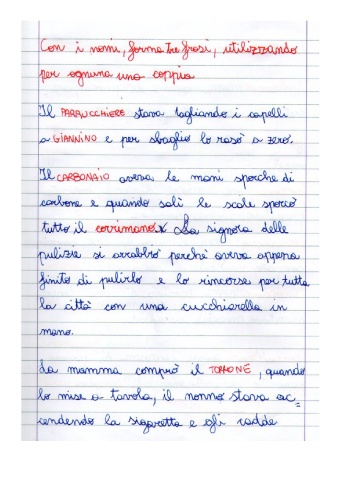 Con i nomi, forma tre frasi, utilizzando
per ognuna una coppia
Il PARRUCCHIERE stava tagliando i capelli
a GIANNINO e per sbaglio lo rasò a zero.
Il CARBONAIO aveva le mani sporche di
carbone e quando salì le scale sporcò
tutto il corrimano. La signora delle
pulizie si arrabbiò perché aveva appena
finito di pulirlo e lo rincorse per tutta
la città con una cucchiarella in
mano.
La mamma comprò il TORRONE, quando
lo mise a tavola, il nonno stava ac
cendendo la sigaretta e gli cadde